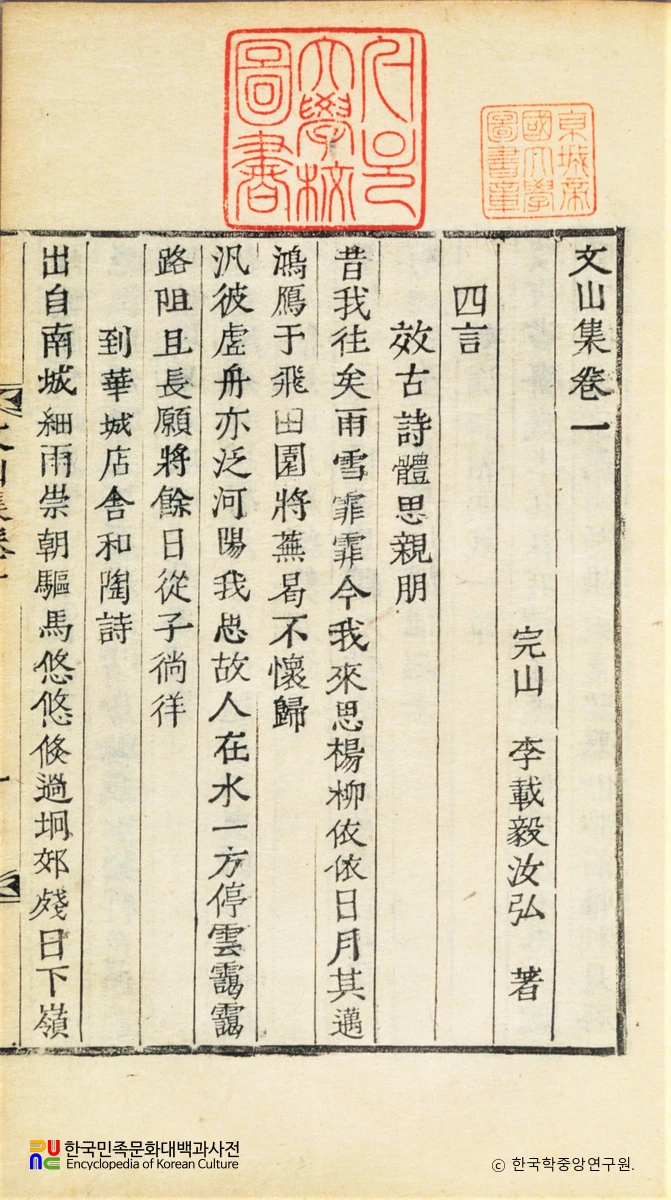 文山集卷一
完山 李載毅汝弘 著
四言
效古詩體思親朋
昔我往矣雨雪霏霏今我來思楊柳依依日月其邁
鴻鴈于飛田園將蕪曷不懷歸
汎彼虛舟亦泛河陽我思故人在水一方停雲靄靄
路阻且長願將餘日從子徜徉
到華城店舍和陶詩
出自南城細雨崇朝驅馬悠悠倐過坰郊殘日下嶺
大學校
圖書
한국민족문화대백과사전
Encyclopedia of Korean Culture
ⓒ 한국학중앙연구원.